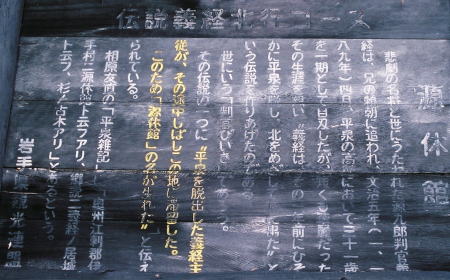 伝説義経北行コース
源休館
悲劇の名将と世にうたわれた源九郎判官義
経は、兄の頼朝に追われ、文治五年（一一
八九年）四月、平泉の高館において三十一歳
を一期として自刃したが、短く
その生涯を 義経は、その一年前にひそ
かに平泉を脱し、北をめざして
いう伝説を作りあげたのである。
世にいう「判官びいき」であろう。
その伝説の一つに〝平泉を脱出した義経主
従が、その途中しばしこの地に滞留した。
このため「源休館」の名がうまれた〟と伝え
られている。
相原友直の「平泉雑記」に「奥州江刺郡伊
手村ニ源休館ト云フアリ、 義経ノ居城
ト云フ、杉ノ古木アリ」とあるという。
岩手県観光連盟